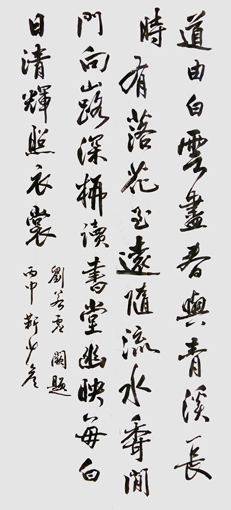 道由白雲盡春與青溪長
時有落花至遠隨流水香閒
門向山路深柳讀書堂幽映每白
日清輝照衣裳
劉昚虛 闕題
丙申靳少